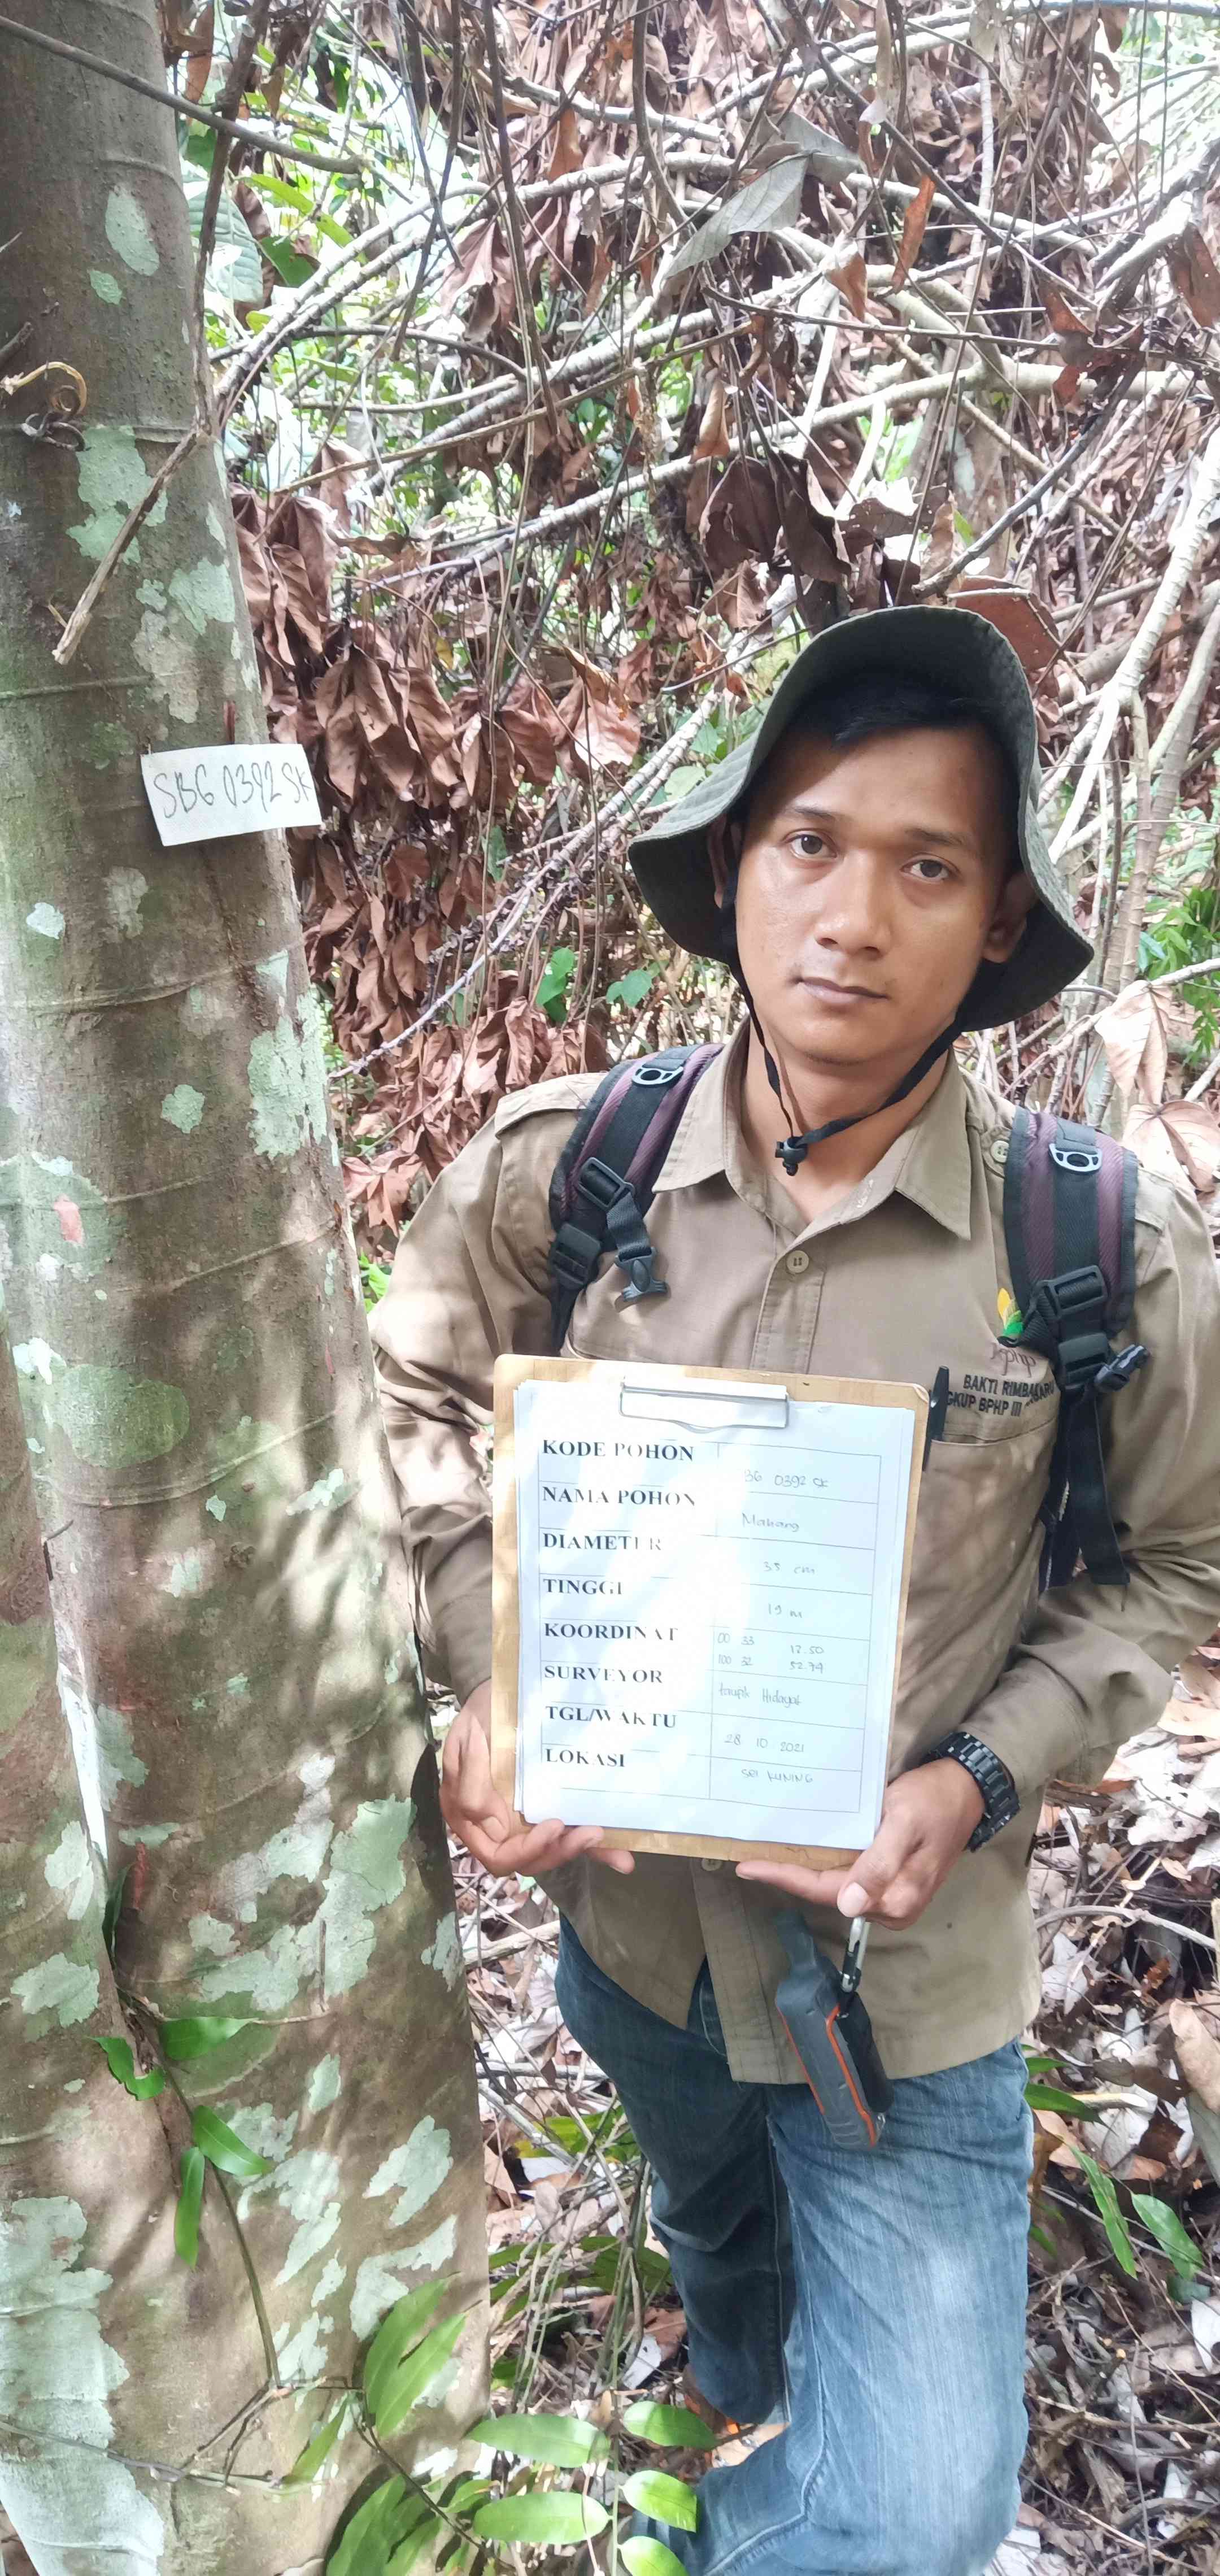 SBG 0392 SK
kphp
BAKTI RIMBA
GKUP BPHP III
KODE POHON BG 0392 SK
NAMA POHON Mahang
DIAMETER 35 cm
TINGGI 19 m
KOORDINAT 00 33 12.50
100 32 52.79
SURVEYOR taufik Hidayat
TGL/WAKTU 28 10 2021
LOKASI SEI KUNING